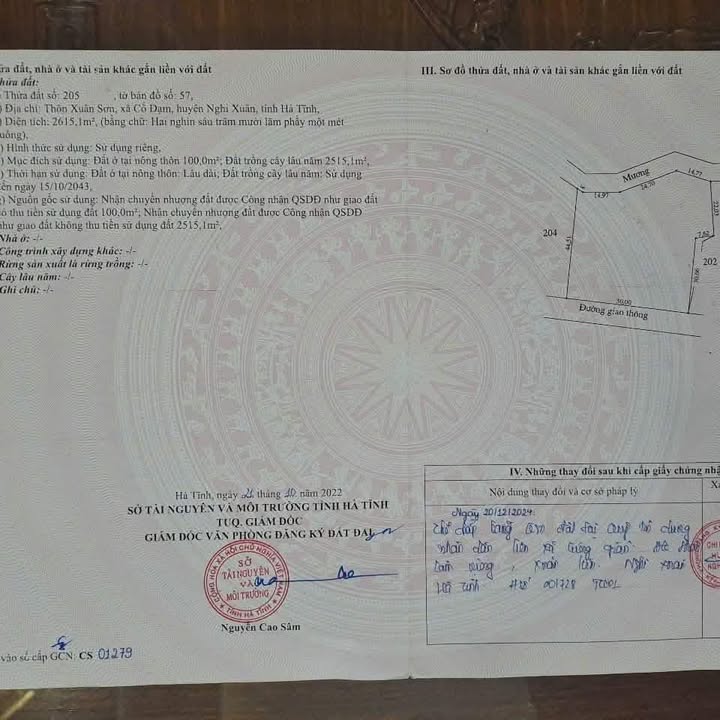 ửa đất, nhà ở và tài sản khác gắn liền với đất
hửa đất:
Thửa đất số: 205 , tờ bản đồ số: 57,
) Địa chỉ: Thôn Xuân Sơn, xã Cổ Đạm, huyện Nghi Xuân, tỉnh Hà Tĩnh,
) Diện tích: 2615,1m², (bằng chữ: Hai nghìn sáu trăm mười lăm phẩy một mét
uông),
) Hình thức sử dụng: Sử dụng riêng,
) Mục đích sử dụng: Đất ở tại nông thôn 100,0m²; Đất trồng cây lâu năm 2515,1m²,
) Thời hạn sử dụng: Đất ở tại nông thôn: Lâu dài; Đất trồng cây lâu năm: Sử dụng
ến ngày 15/10/2043,
) Nguồn gốc sử dụng: Nhận chuyển nhượng đất được Công nhận QSDĐ như giao đất
ó thu tiền sử dụng đất 100,0m², Nhận chuyển nhượng đất được Công nhận QSDĐ
như giao đất không thu tiền sử dụng đất 2515,1m²,
Nhà ở: -/-
Công trình xây dựng khác: -/-
Rừng sản xuất là rừng trồng: -/-
Cây lâu năm: -/-
Ghi chú: -/-
Hà Tĩnh, ngày 21 tháng 10 năm 2022
SỞ TÀI NGUYÊN VÀ MÔI TRƯỜNG TỈNH HÀ TĨNH
TUQ. GIÁM ĐỐC
GIÁM ĐỐC VĂN PHÒNG ĐĂNG KÝ ĐẤT ĐAI
CỘNG HÒA XÃ HỘI CHỦ NGHĨA VIỆT NAM
SỞ
TÀI NGUYÊN
VÀ
MÔI TRƯỜNG
TỈNH HÀ TĨNH
Nguyễn Cao Sâm
vào sổ cấp GCN: CS 01279
III. Sơ đồ thửa đất, nhà ở và tài sản khác gắn liền với đất
Mương
14,97
14,77
204
44,51
7,52
202
30,66
50,00
Đường giao thông
IV. Những thay đổi sau khi cấp giấy chứng nhậ
Nội dung thay đổi và cơ sở pháp lý
Ngày 20/12/2024
nhân dân liên xã
Hà Tĩnh